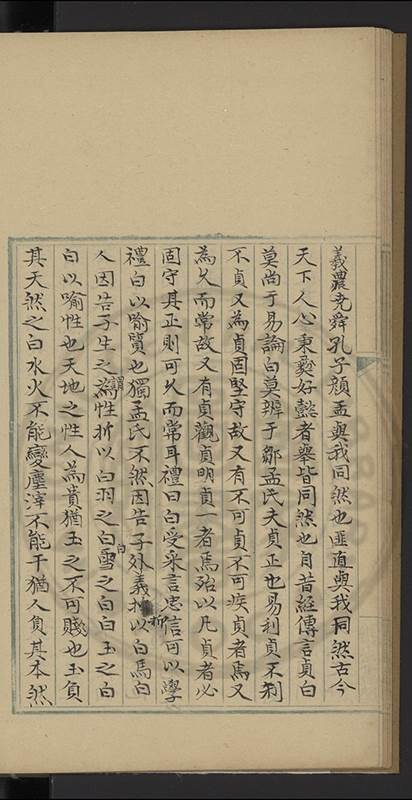 羲農堯舜孔子顏孟與我同然也匪直與我同然古今
天下人心秉彝好懿者舉皆同然也自昔經傳言貞白
莫尚于易論白莫辨于鄒孟氏夫貞正也易利貞不利
不貞又為貞固堅守故又有不可貞不可疾貞者焉又
為久而常故又有貞觀貞明貞一者焉殆以凡貞者必
固守其正則可久而常耳禮曰白受采言忠信可以學
禮白以喻質也獨孟氏不然因告子外義折以白馬白
人因告子生之謂性折以白羽之白白雪之白白玉之白
白以喻性也天地之性人為貴猶玉之不可賤也玉負
其天然之白水火不能變塵滓不能干猶人負其本然